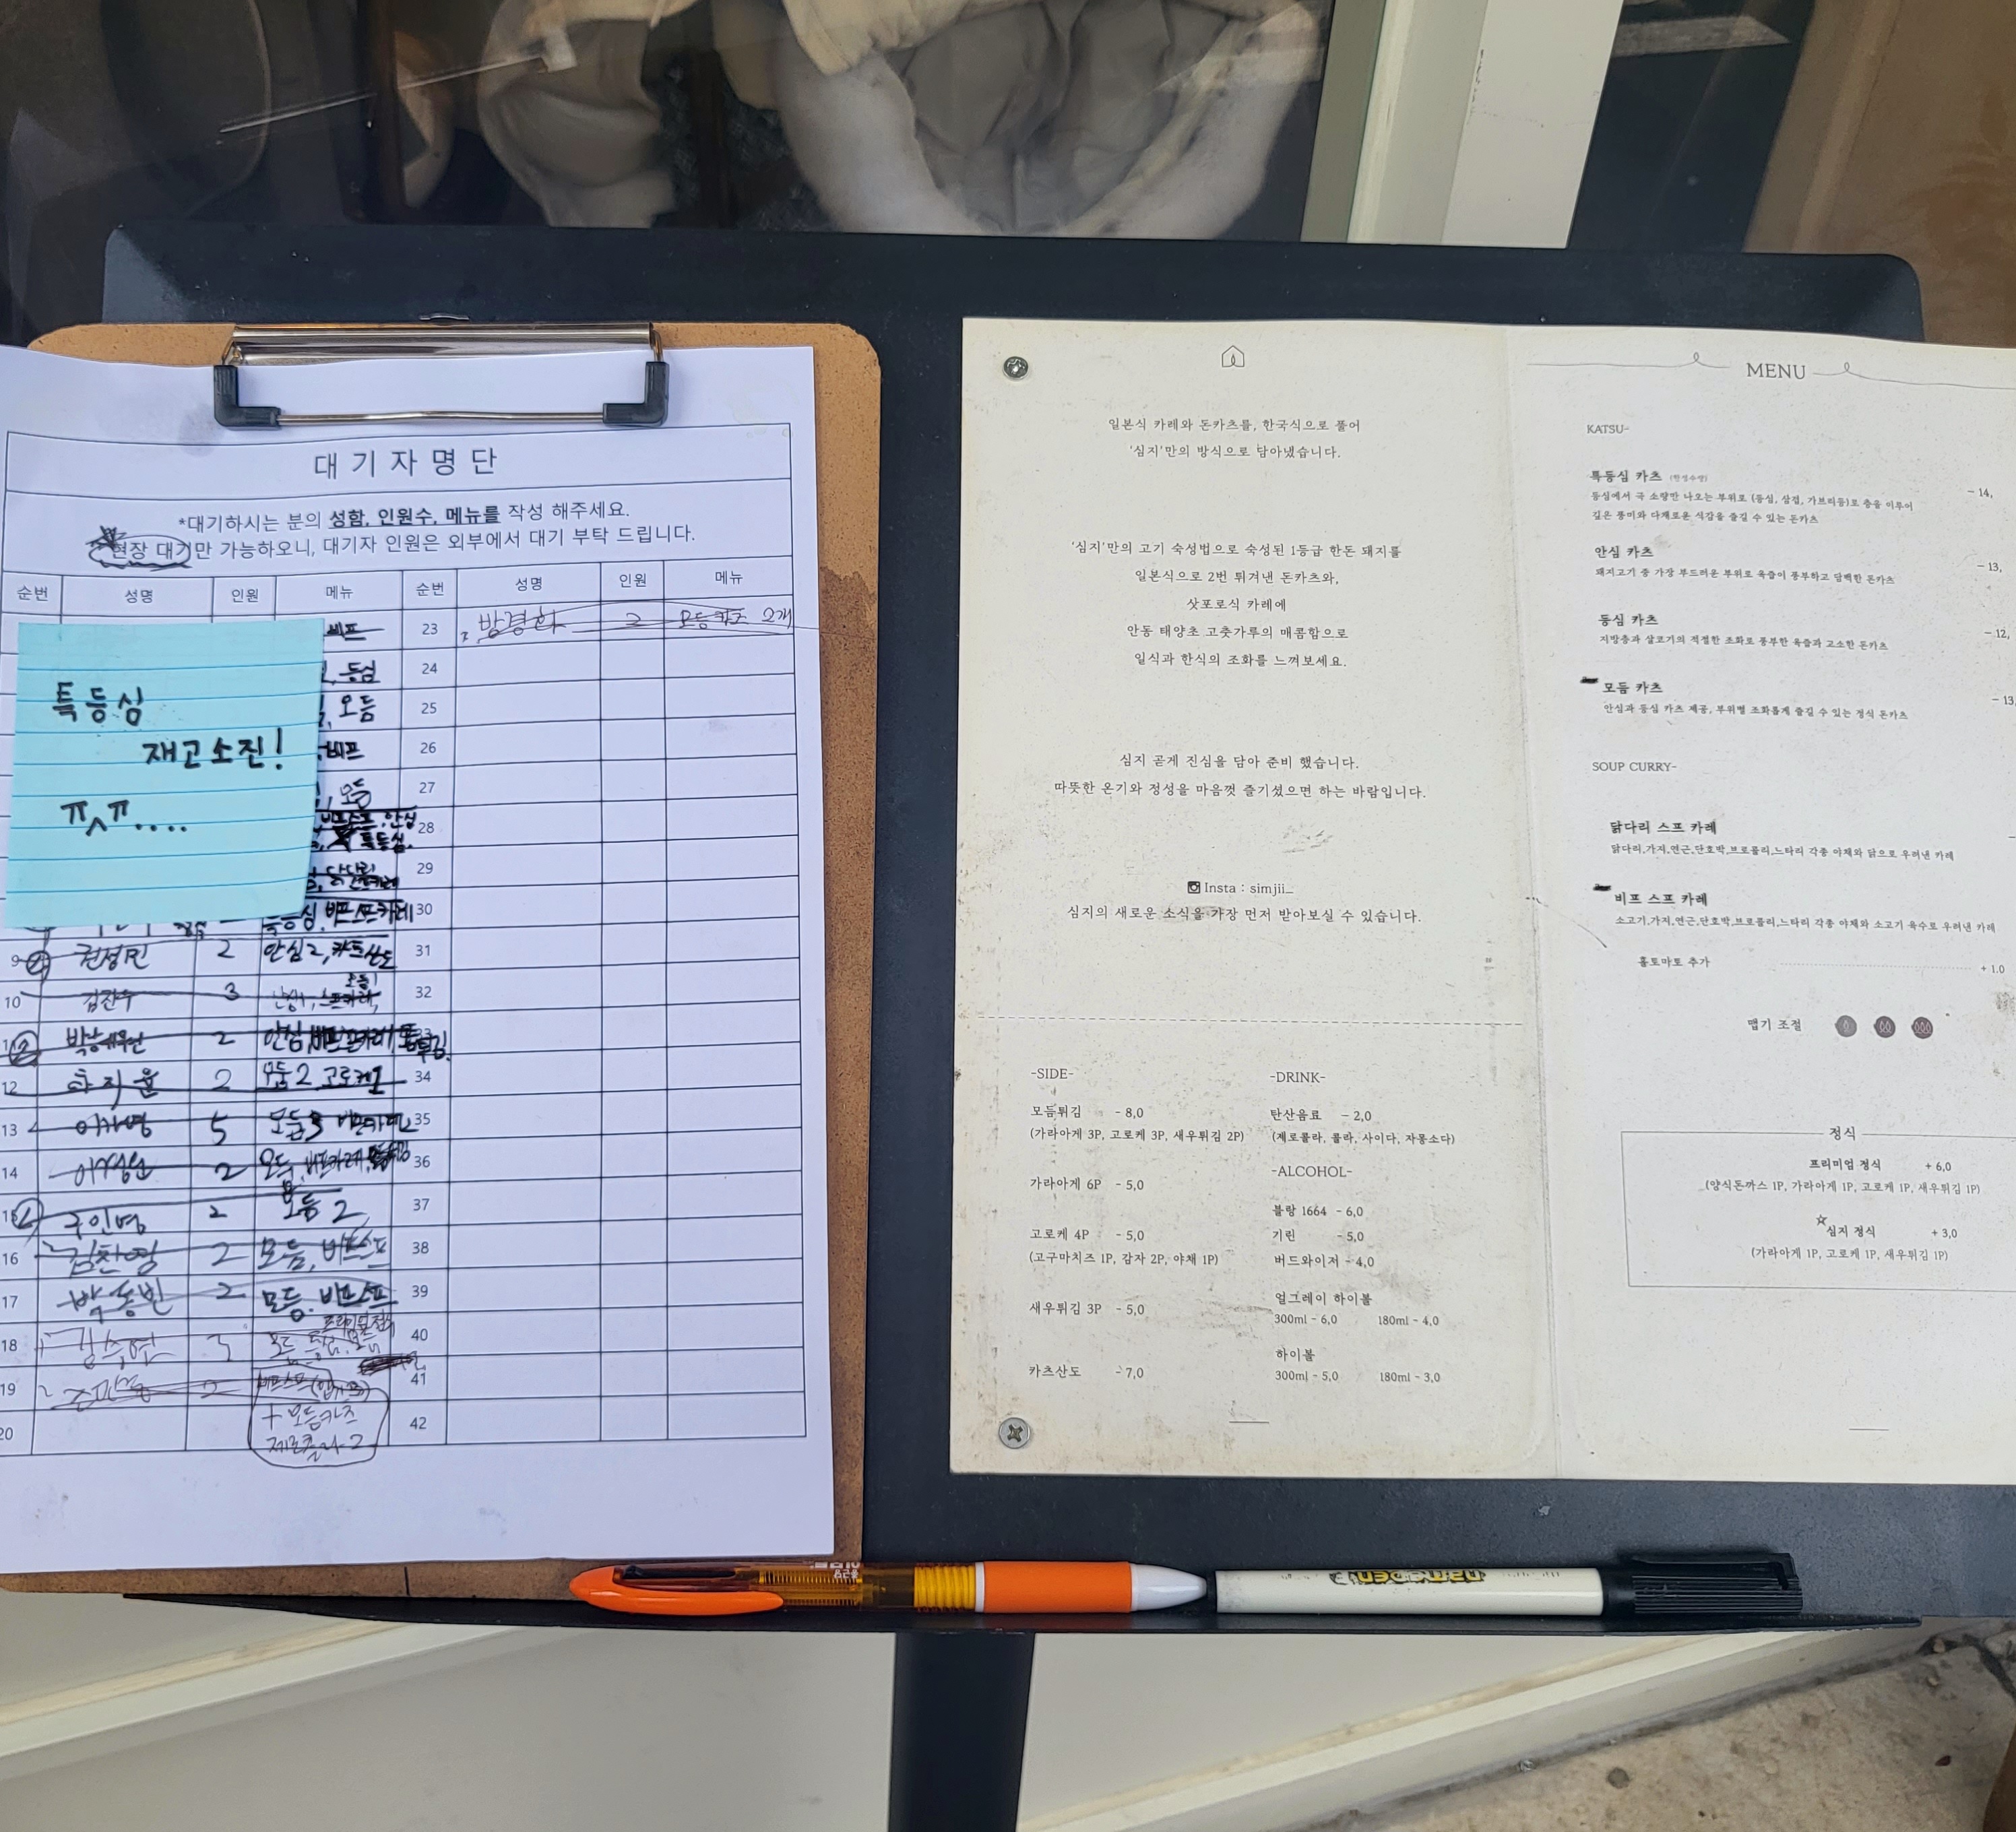 대기자명단
*대기하시는 분의 성함, 인원수, 메뉴를 작성 해주세요.
현장 대기만 가능하오니, 대기자 인원은 외부에서 대기 부탁 드립니다.
순번 성명 인원 메뉴 순번 성명 인원 메뉴
비프 23 방경화 2 모듬카츠 2개
등심 24
모듬 25
비프 26
모듬 27
안심 28
특등심.
29
특등심, 비프스프카레 30
9 권성민 2 안심2, 카츠산도 31
10 김진수 3 32
2 안심,
12 2 모듬2 고로케1 34
13 5 모듬3 35
14 2 모듬, 36
구인영 2 모듬2 37
16 김찬영 2 모듬, 비프스프 38
17 박홍빈 2 모듬. 비프스프 39
18 3 모듬, 등심, 모듬 40
19 2 비프스프 41
20 + 모듬카츠 42
제로콜라 2
특등심
재고소진!
ㅠㅅㅠ....
일본식 카레와 돈카츠를, 한국식으로 풀어
'심지'만의 방식으로 담아냈습니다.
'심지'만의 고기 숙성법으로 숙성된 1등급 한돈 돼지를
일본식으로 2번 튀겨낸 돈카츠와,
삿포로식 카레에
안동 태양초 고춧가루의 매콤함으로
일식과 한식의 조화를 느껴보세요.
심지 곧게 진심을 담아 준비 했습니다.
따뜻한 온기와 정성을 마음껏 즐기셨으면 하는 바람입니다.
Insta : simjii_
심지의 새로운 소식을 가장 먼저 받아보실 수 있습니다.
-SIDE-
모듬튀김 - 8,0
(가라아게 3P, 고로케 3P, 새우튀김 2P)
가라아게 6P - 5,0
고로케 4P - 5,0
(고구마치즈 1P, 감자 2P, 야채 1P)
새우튀김 3P - 5,0
카츠산도 - 7,0
-DRINK-
탄산음료 - 2,0
(제로콜라, 콜라, 사이다, 자몽소다)
-ALCOHOL-
블랑 1664 - 6,0
기린 - 5,0
버드와이저 - 4,0
얼그레이 하이볼
300ml - 6,0 180ml - 4,0
하이볼
300ml - 5,0 180ml - 3,0
MENU
KATSU-
특등심 카츠 (한정수량) - 14,
등심에서 극 소량만 나오는 부위로 (등심, 삼겹, 가브리등)로 층을 이루어
깊은 풍미와 다채로운 식감을 즐길 수 있는 돈카츠
안심 카츠 - 13,
돼지고기 중 가장 부드러운 부위로 육즙이 풍부하고 담백한 돈카츠
등심 카츠 - 12,
지방층과 살코기의 적절한 조화로 풍부한 육즙과 고소한 돈카츠
모듬 카츠 - 13,
안심과 등심 카츠 제공, 부위별 조화롭게 즐길 수 있는 정식 돈카츠
SOUP CURRY-
닭다리 스프 카레 -
닭다리,가지,연근,단호박,브로콜리,느타리 각종 야채와 닭으로 우려낸 카레
비프 스프 카레
소고기,가지,연근,단호박,브로콜리,느타리 각종 야채와 소고기 육수로 우려낸 카레
홀토마토 추가 + 1.0
맵기 조절
정식
프리미엄 정식 + 6,0
(양식돈까스 1P, 가라아게 1P, 고로케 1P, 새우튀김 1P)
☆심지 정식 + 3,0
(가라아게 1P, 고로케 1P, 새우튀김 1P)